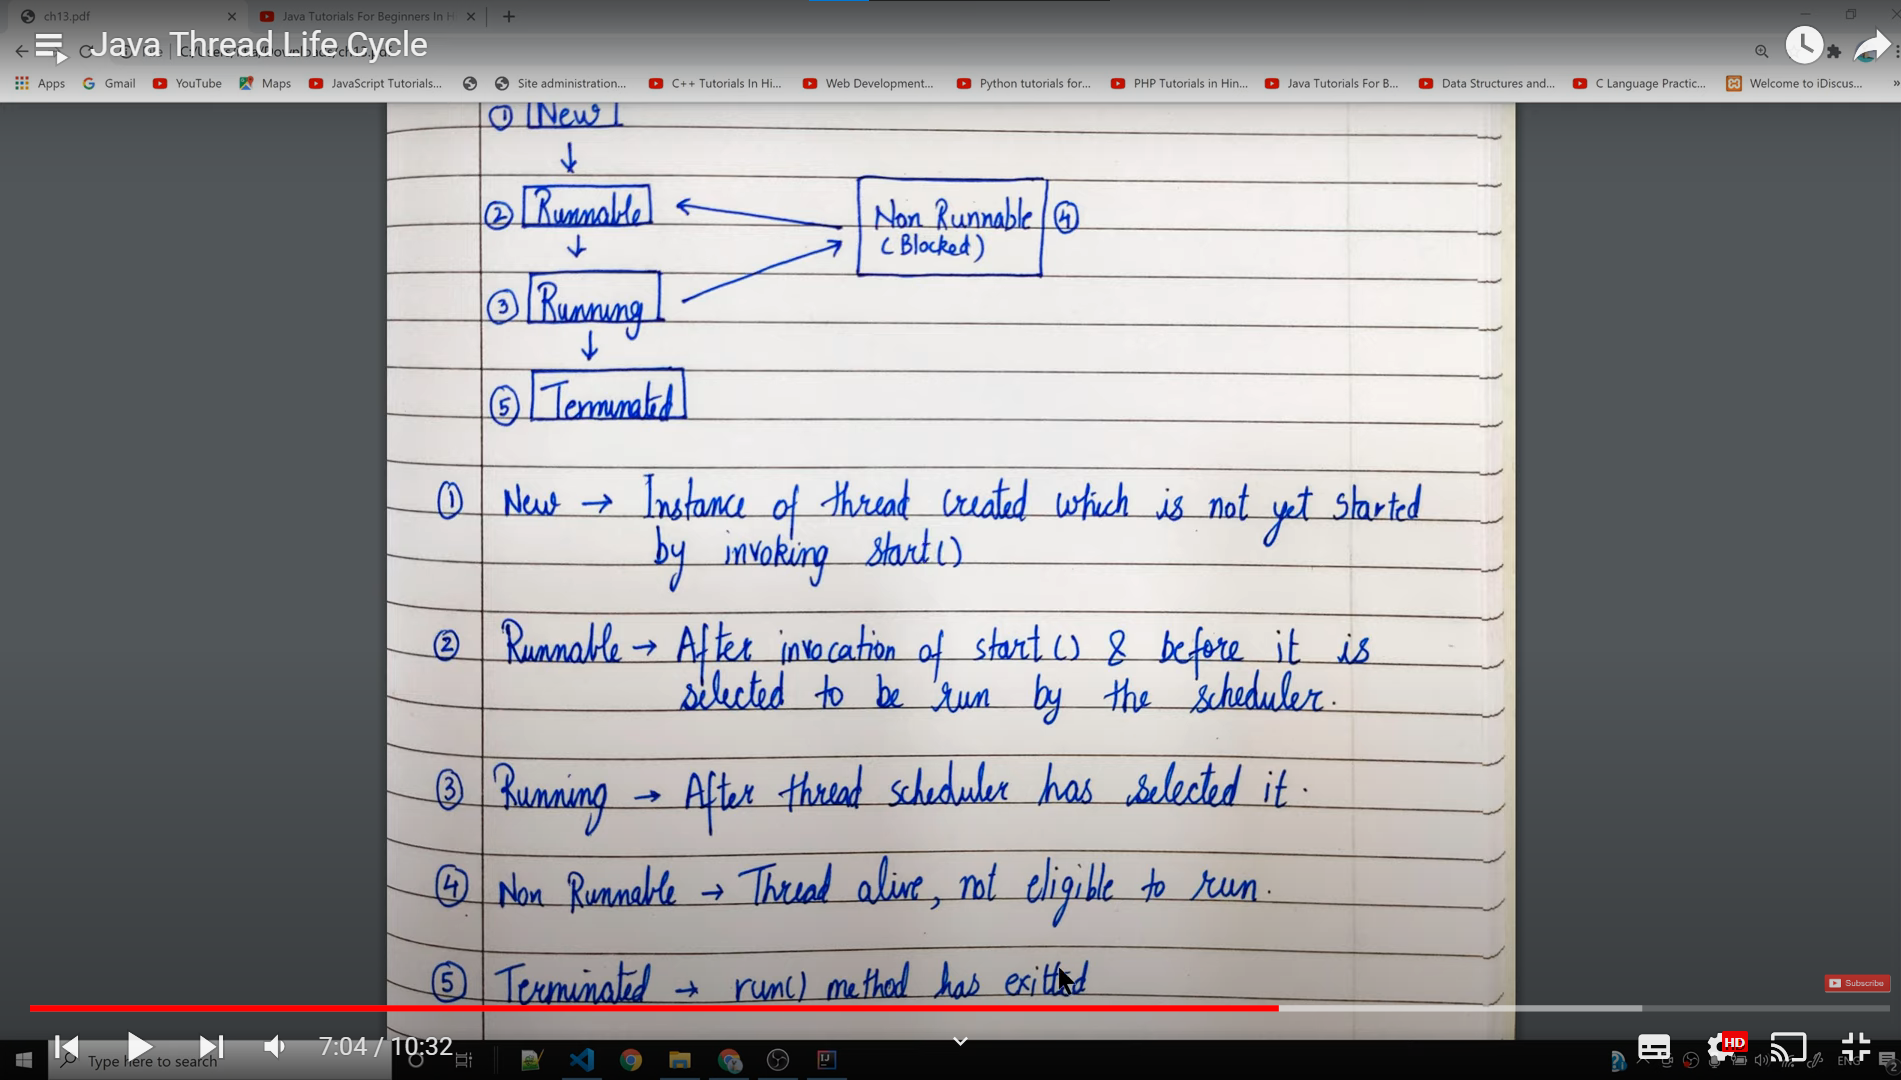 ch13.pdf
Java Tutorials For Beginners In H
Java Thread Life Cycle
Apps
Gmail
YouTube
Maps
JavaScript Tutorials...
Site administration...
C++ Tutorials In Hi...
Web Development...
Python tutorials for...
PHP Tutorials in Hin...
Java Tutorials For B...
Data Structures and...
C Language Practic...
Welcome to iDiscus...
① New
② Runnable
Non Runnable ④
(Blocked)
③ Running
⑤ Terminated
① New → Instance of thread created which is not yet started
by invoking start()
② Runnable → After invocation of start() & before it is
selected to be run by the scheduler.
③ Running → After thread scheduler has selected it.
④ Non Runnable → Thread alive, not eligible to run.
⑤ Terminated → run() method has exitted
Subscribe
7:04 / 10:32
HD
Type here to search
ENG